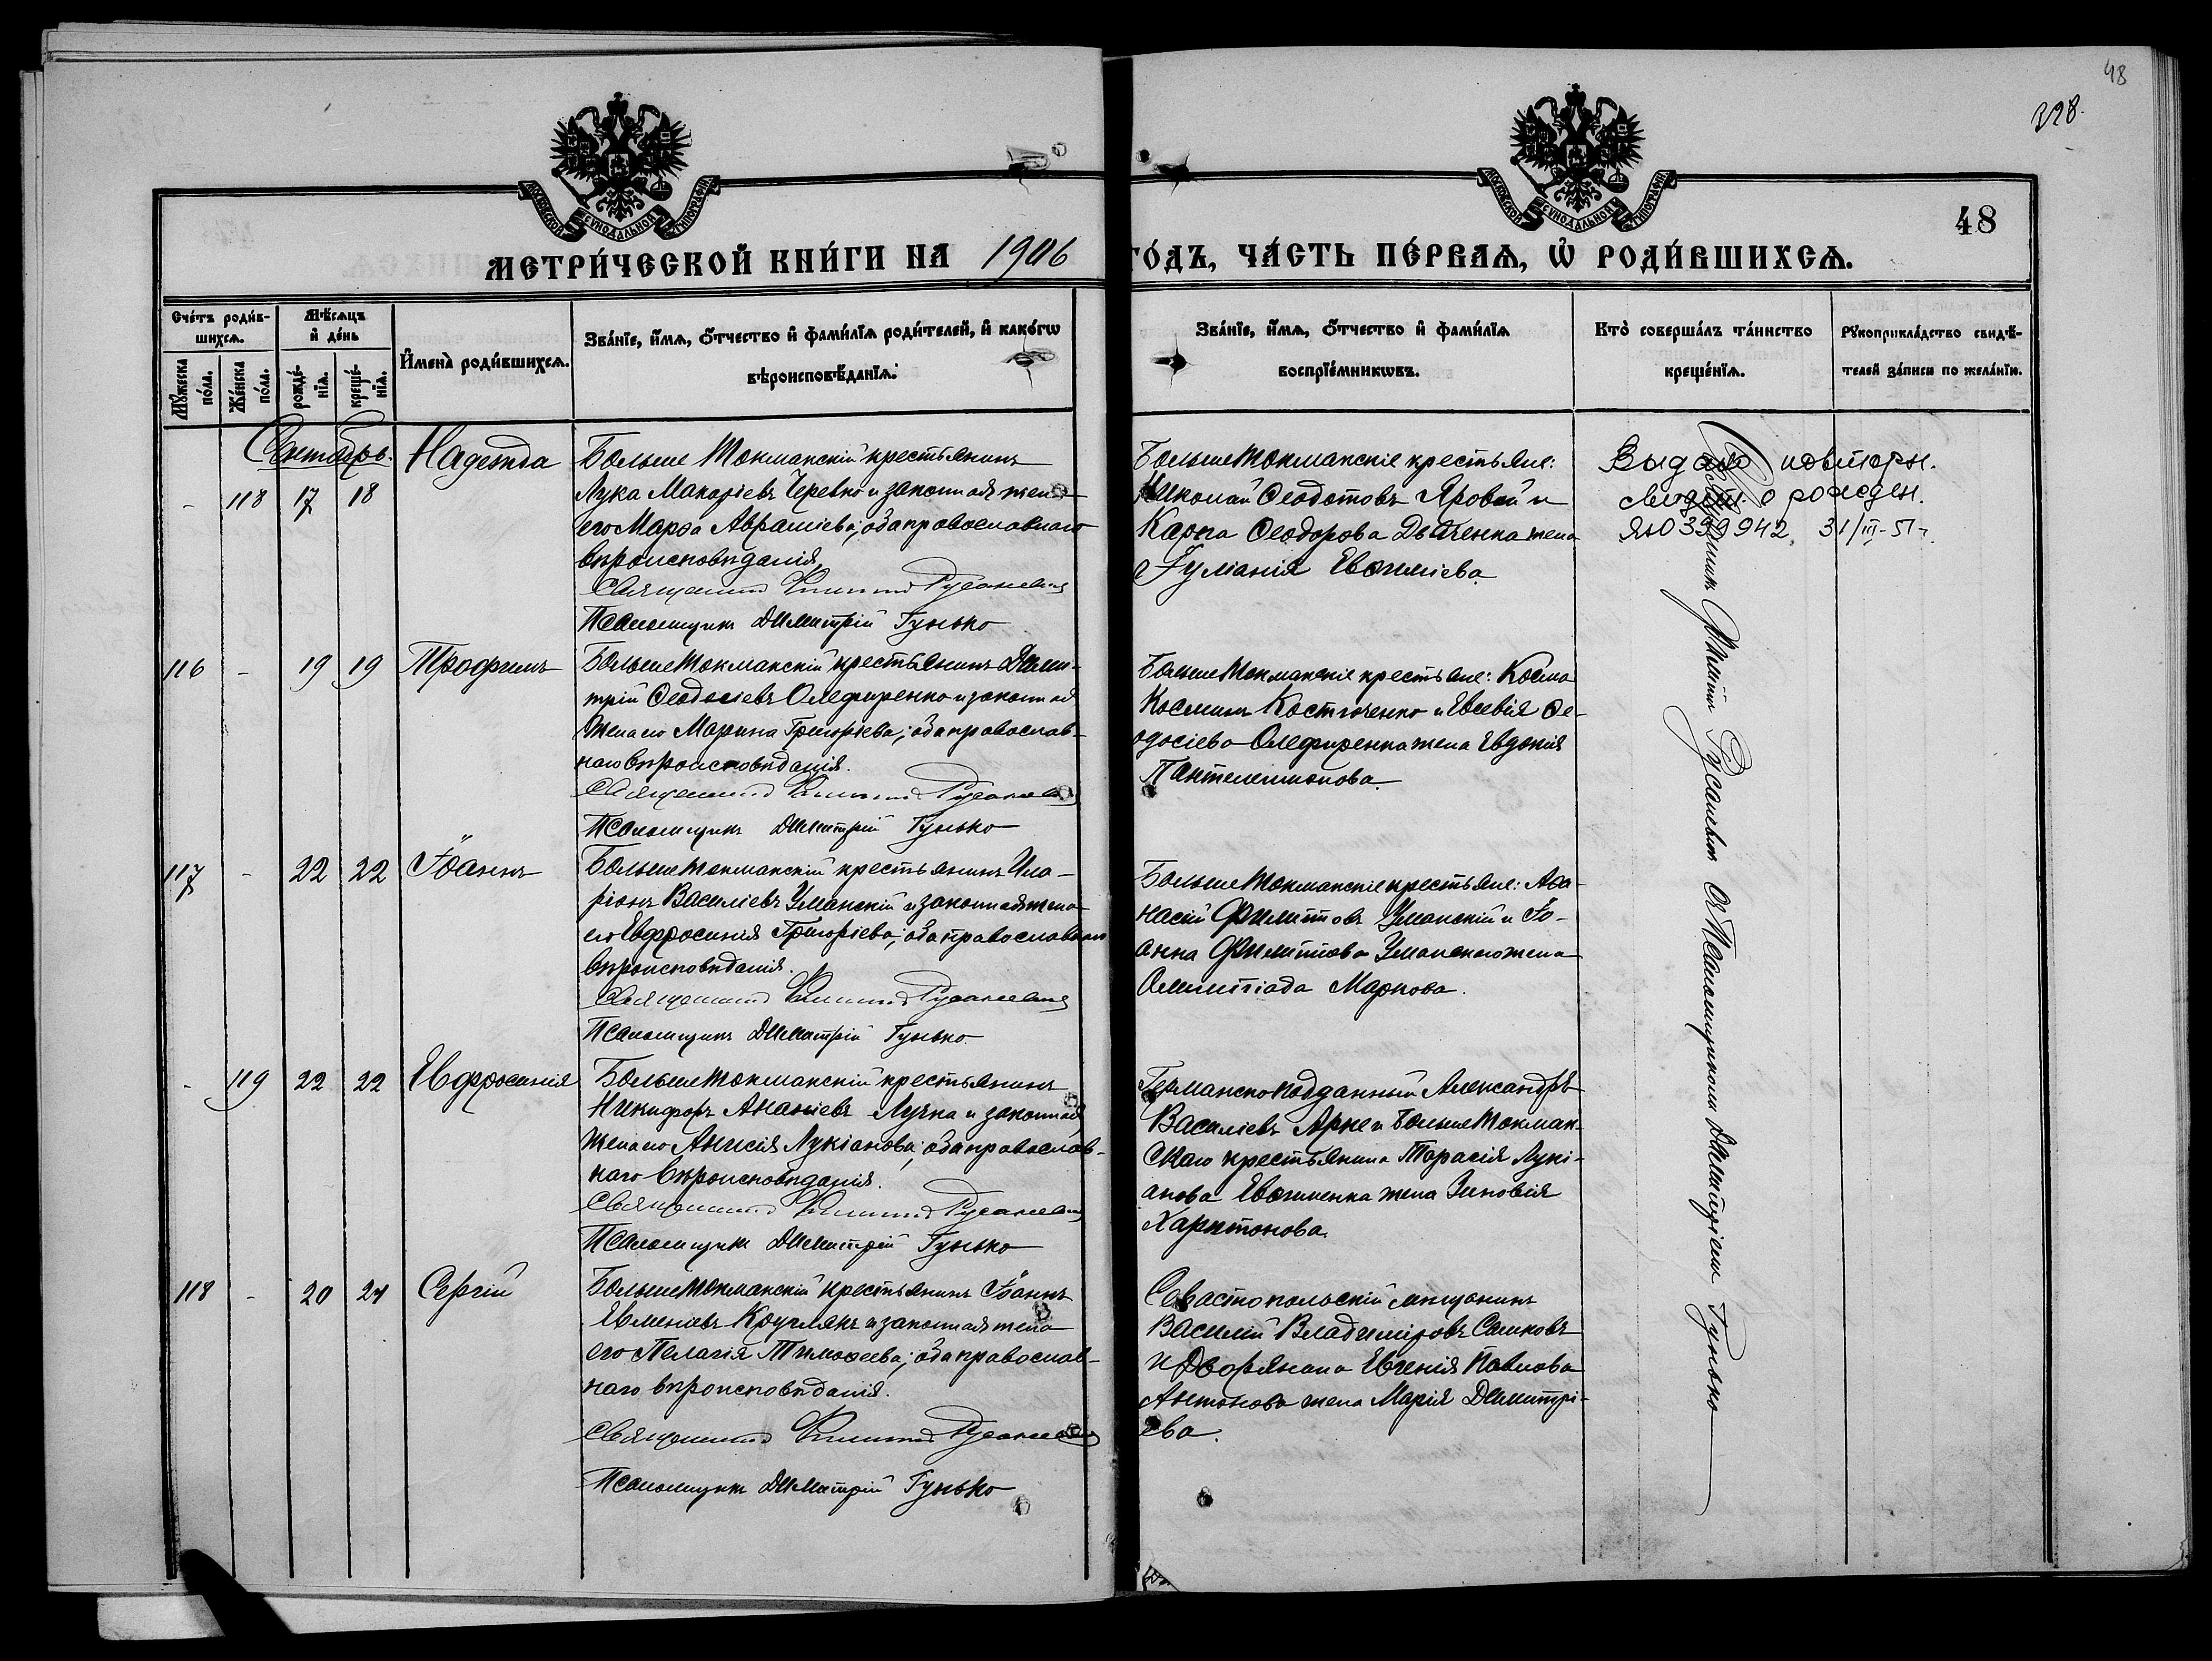 48
328.
МОСКОВСКОЙ СѴНОДАЛЬНОЙ ТИПОГРАФІИ
МОСКОВСКОЙ СѴНОДАЛЬНОЙ ТИПОГРАФІИ
48
МЕТРИ́ЧЕСКОЙ КНИ́ГИ НА 1906 ГО́ДЪ, ЧА́СТЬ ПЕ́РВАѦ, Ѡ҆ РОДИ́ВШИХСѦ.
Сче́тъ роди́в-
шихсѧ.
Мꙋ́жеска по́ла.
Же́нска по́ла.
Мѣ́сѧцъ
и҆ де́нь
рожде́-
нїѧ.
креще́-
нїѧ.
И҆мена̀ роди́вшихсѧ.
Зва́нїе, и҆́мѧ, ѻ҆́тчество и҆ фами́лїѧ роди́телей, и҆ како́гѡ
вѣроисповѣ́данїѧ.
Зва́нїе, и҆́мѧ, ѻ҆́тчество и҆ фами́лїѧ
воспрїе́мникѡвъ.
Кто̀ соверша́лъ та́инство
креще́нїѧ.
Рꙋкоприкла́дство свидѣ́-
телей за́писи по жела́нїю.
Сентябрь.
- 118 17 18 Надежда
Больше Токмакскій крестьянинъ
Лука Макаріевъ Черевко и законная жена
его Марѳа Авраміева; оба православнаго
вѣроисповѣданія.
Священникъ Филиппъ Русаневичъ
Псаломщикъ Димитрій Гунько
БольшеТокмакскіе крестьяне:
Николай Ѳеодотовъ Яровой и
Карпа Ѳеодорова Дьяченка жена
Іуліанія Евѳиміева.
Выдано повторн.
свидет. о рожден.
ЯЮ 0399942 31/III-51 г.
116 - 19 19 Трофимъ
БольшеТокмакскій крестьянинъ Дими-
трій Ѳеодосіевъ Олефиренко и законная
жена его Марина Григорьева; оба православ-
наго вѣроисповѣданія.
Священникъ Филиппъ Русаневичъ
Псаломщикъ Димитрій Гунько
БольшеТокмакскіе крестьяне: Косма
Космин Костюченко и Евсевія Ѳе-
одосіева Олефиренка жена Евдокія
Пантелеимонова.
117 - 22 22 Іоаннъ
БольшеТокмакскій крестьянинъ Ила-
ріонъ Василіевъ Уманскій и законная жена
его Евфросинія Григоріева; оба православнаго
вѣроисповѣданія.
Священникъ Филиппъ Русаневичъ
Псаломщикъ Димитрій Гунько
БольшеТокмакскіе крестьяне: Аѳа-
насій Филиповъ Уманскій и Іо-
анна Филиппова Уманскаго жена
Олимпіада Маркова.
- 119 22 22 Евфросинія
БольшеТокмакскій крестьянинъ
Никифоръ Ананіевъ Лучка и законная
жена его Анисія Лукіанова; оба православ-
наго вѣроисповѣданія.
Священникъ Филиппъ Русаневичъ
Псаломщикъ Димитрій Гунько
Германскоподданный Александръ
Василіевъ Арне и БольшеТокмак-
скаго крестьянина Тарасія Лукі-
анова Евѳименка жена Зиновія
Харитонова.
118 - 20 24 Сергій
БольшеТокмакскій крестьянинъ Іоаннъ
Евменіевъ Круглякъ и законная жена
его Пелагія Тимоѳеева; оба православ-
наго вѣроисповѣданія.
Священникъ Филиппъ Русаневичъ
Псаломщикъ Димитрій Гунько
Севастопольскій мѣщанинъ
Василій Владиміровъ Сашковъ
и Дворянина Евгенія Павлова
Антонова жена Марія Димитрі-
ева.
Священникъ Филиппъ Русаневичъ съ Псаломщикомъ Димитріемъ Гунько